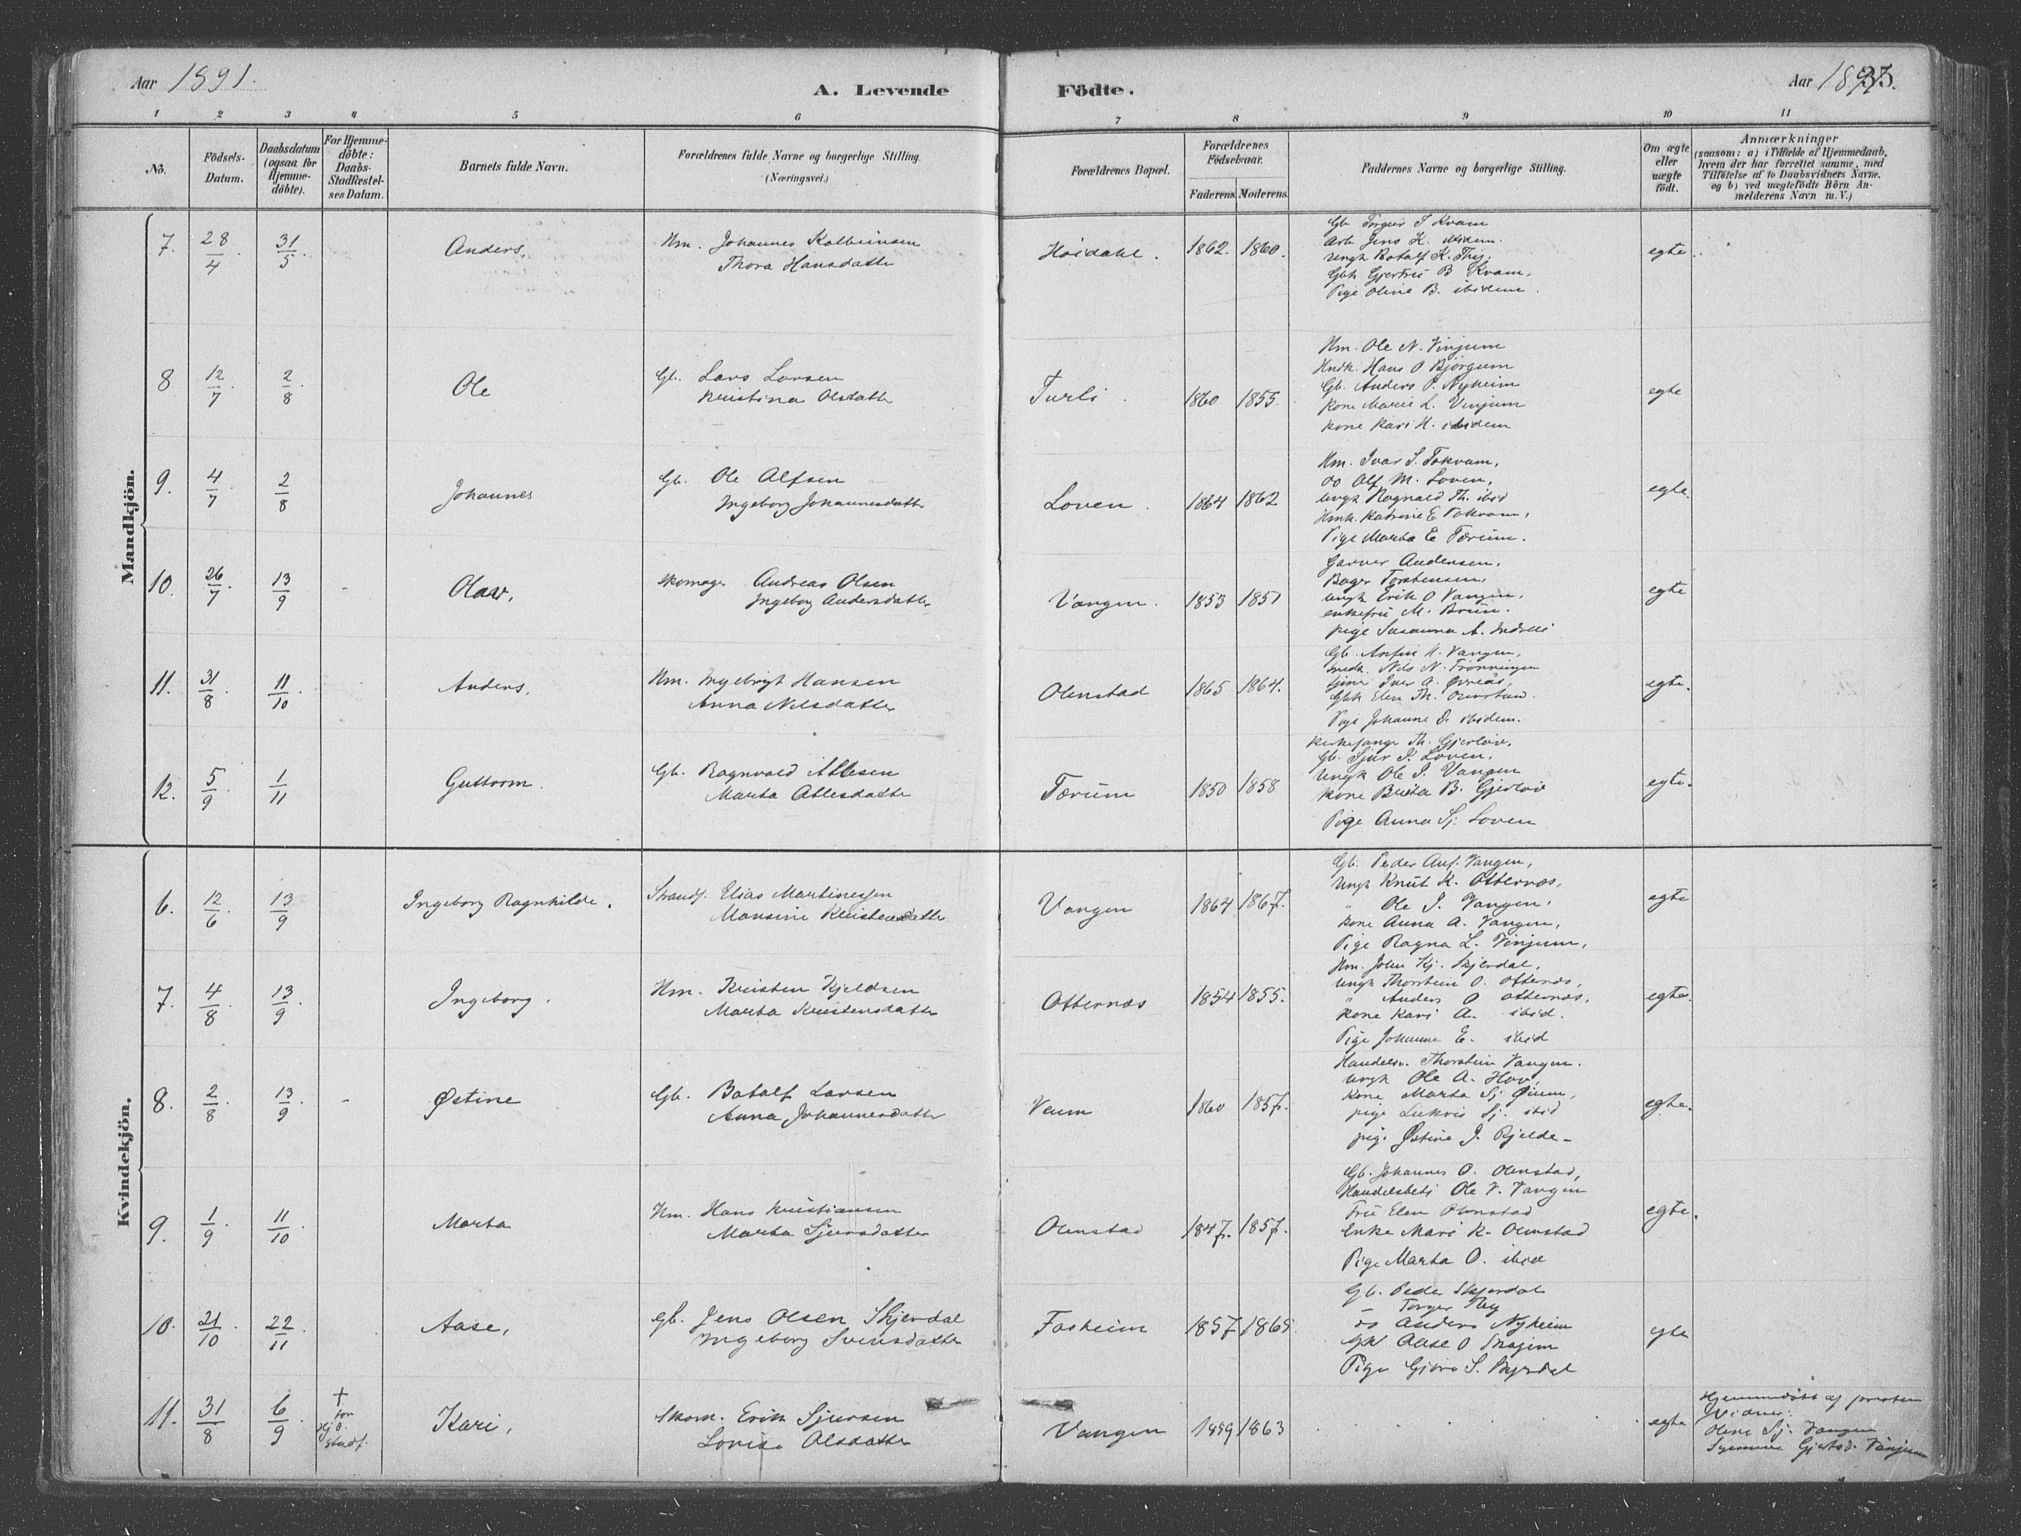 Aar 1891.
A. Levende Födte.
Aar 1891
33.
1 2 3 4 5 6 7 8 9 10 11
No.
Födsels-Datum.
Daabsdatum (ogsaa for Hjemmedöbte).
For Hjemmedöbte: Daabs-Stadfestelses Datum.
Barnets fulde Navn.
Forældrenes fulde Navne og borgerlige Stilling. (Næringsvei.)
Forældrenes Bopæl.
Forældrenes Födselsaar.
Faderens. Moderens.
Faddernes Navne og borgerlige Stilling.
Om ægte eller uægte födt.
Anmærkninger
(saasom: a) i Tilfælde af Hjemmedaab, hvem der har forrettet samme, med Tilföielse af to Daabsvidners Navne. og b) ved uægtefödte Börn Anmelderens Navn m. V.)
Mandkjön.
7. 28/4 31/5 Anders, Hm. Johannes Kolbeinsen
Thora Hansdatter
Höidahl. 1862. 1860.
Gb. Torgeir T Kvam
Arb. Jens K. ibidem.
Ungk Botolf K.
Gbk Gjertrü B Kvam,
Pige Oline B. ibidem.
egte.
8 12/7 2/8 Ole Gb. Lars Larsen
Kristina Olsdatter
Turli. 1860 1855.
Hm. Ole N. Vinjum
Hans O Bjørgum
Gb. Anders P. Nyheim
Kone Marie L. Vinjum
Kone Kari H. ibidem
egte
9. 4/7 2/8 Johannes Gb. Ole Alfsen
Ingeborg Johannesdatter
Loven. 1864 1862
Hm. Ivar S. Tokvam,
do Olf M. Loven,
Ungk Ragnald Th. ibid
Hmk. Katrine E Tokvam,
Pige Marta E Tærum.
egte.
10. 26/7 13/9 Olav, Skomager Andreas Olsen
Ingeborg Andersdatter
Vangen. 1853 1851
Garver Andersen,
Bager Torstensen,
Ungk Erik O Vangen,
enkefrü M. Brün.
pige Susanna A.
egte
11. 31/8 11/10 Anders, Hm. Ingebrigt Hansen
Anna Nilsdatter
Olenstad 1865 1864.
Gb. Anfin H. Vangen,
Nils N. Frønningen
Iver A.
Gbk Elen Th. Olenstad.
Pige Johanne O. ibidem.
egte.
12. 5/9 1/11 Guttorm. Gb. Ragnvald Atlesen
Marta Atlesdatter
Tærum 1850 1858
Kirkesanger Th. Gjerløw,
Gb. Sjur P. Loven,
Ungk Ole J. Vangen
Kone Brita B. Gjerløw
Pige Anna Sj. Loven
egte.
Kvindekjön.
6. 12/6 13/9 Ingeborg Ragnhilde. Strands. Elias Martinessen
Mansine Kristensdatter
Vangen 1864 1867.
Gb. Peder Anf. Vangen,
Ungk Knut K. Otternæs,
" Ole J. Vangen,
Kone Anna A. Vangen,
Pige Ragna L. Vinjum,
egte
7. 4/8 13/9 Ingeborg. Hm. Kristen Kjeldsen
Marta Kristensdatter
Otternæs 1854 1855.
Hm. John Kj. Skjerdal,
Ungk Thorstein O. Otternæs,
" Anders O Otternæs,
Kone Kari A. ibid.
Pige Johanne E. ibid
egte.
8. 2/8 13/9 Østine Gb. Botolf Larsen
Anna Johannesdatter
Veum 1860 1857.
Handelsm. Thorstein Vangen.
Ungk Ole A. Hov,
Kone Marta Sj. Øium,
pige Lukris Sj. ibid
pige Østine J. Bjelde
egte.
9. 1/9 11/10 Marta Hm. Hans Kristiansen
Marta Sjursdatter
Olenstad 1847. 1857.
Gb. Johannes O. Olenstad,
Handelsbetj Ole T. Vangen
Frü Elen Olenstad
Enke Mari K. Olenstad
Pige Marta O. ibid
egte.
10. 21/10 22/11 Aase, Gb. Jens Olsen Skjerdal
Ingeborg Svensdatter
Fosheim 1857 1865.
Gb. Peder Skjerdal
" Torger
do Anders Nyheim
Gk Aase O Skajem
Pige Gjøri S. Skjerdal
egte
11. 31/8 6/9 + før Hjd. stadf. Kari, Skom. Erik Sjursen
Lovise Olsdatter
Vangen 1859 1863
egte
Hjemmedøbt af presten
Vidner:
Oline Sj. Vangen
Synneve Gjertsd. Vinjum